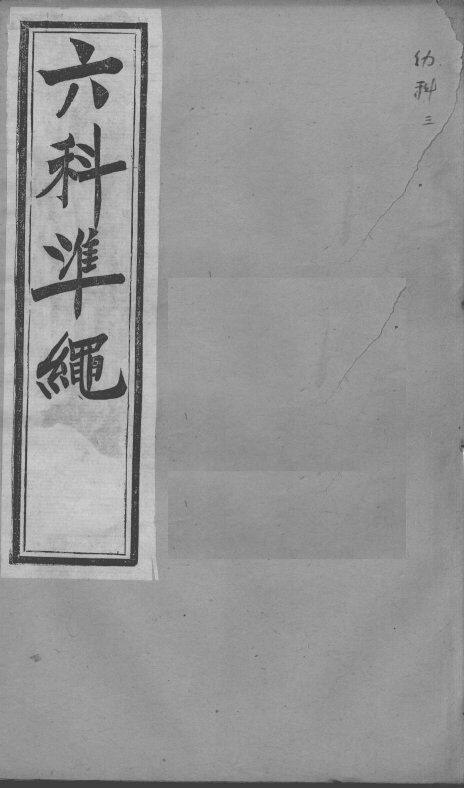 幼科
三
六科準繩